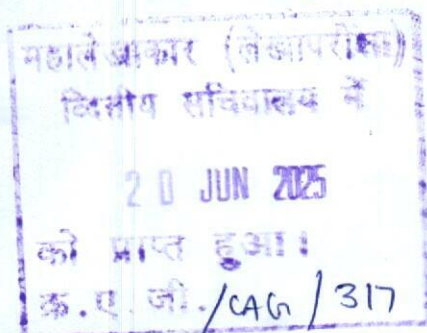 महालेखाकार (लेखापरीक्षा)
वित्तीय सचिवालय में
20 JUN 2025
को प्राप्त हुआ।
क.ए.जी./CAG/317